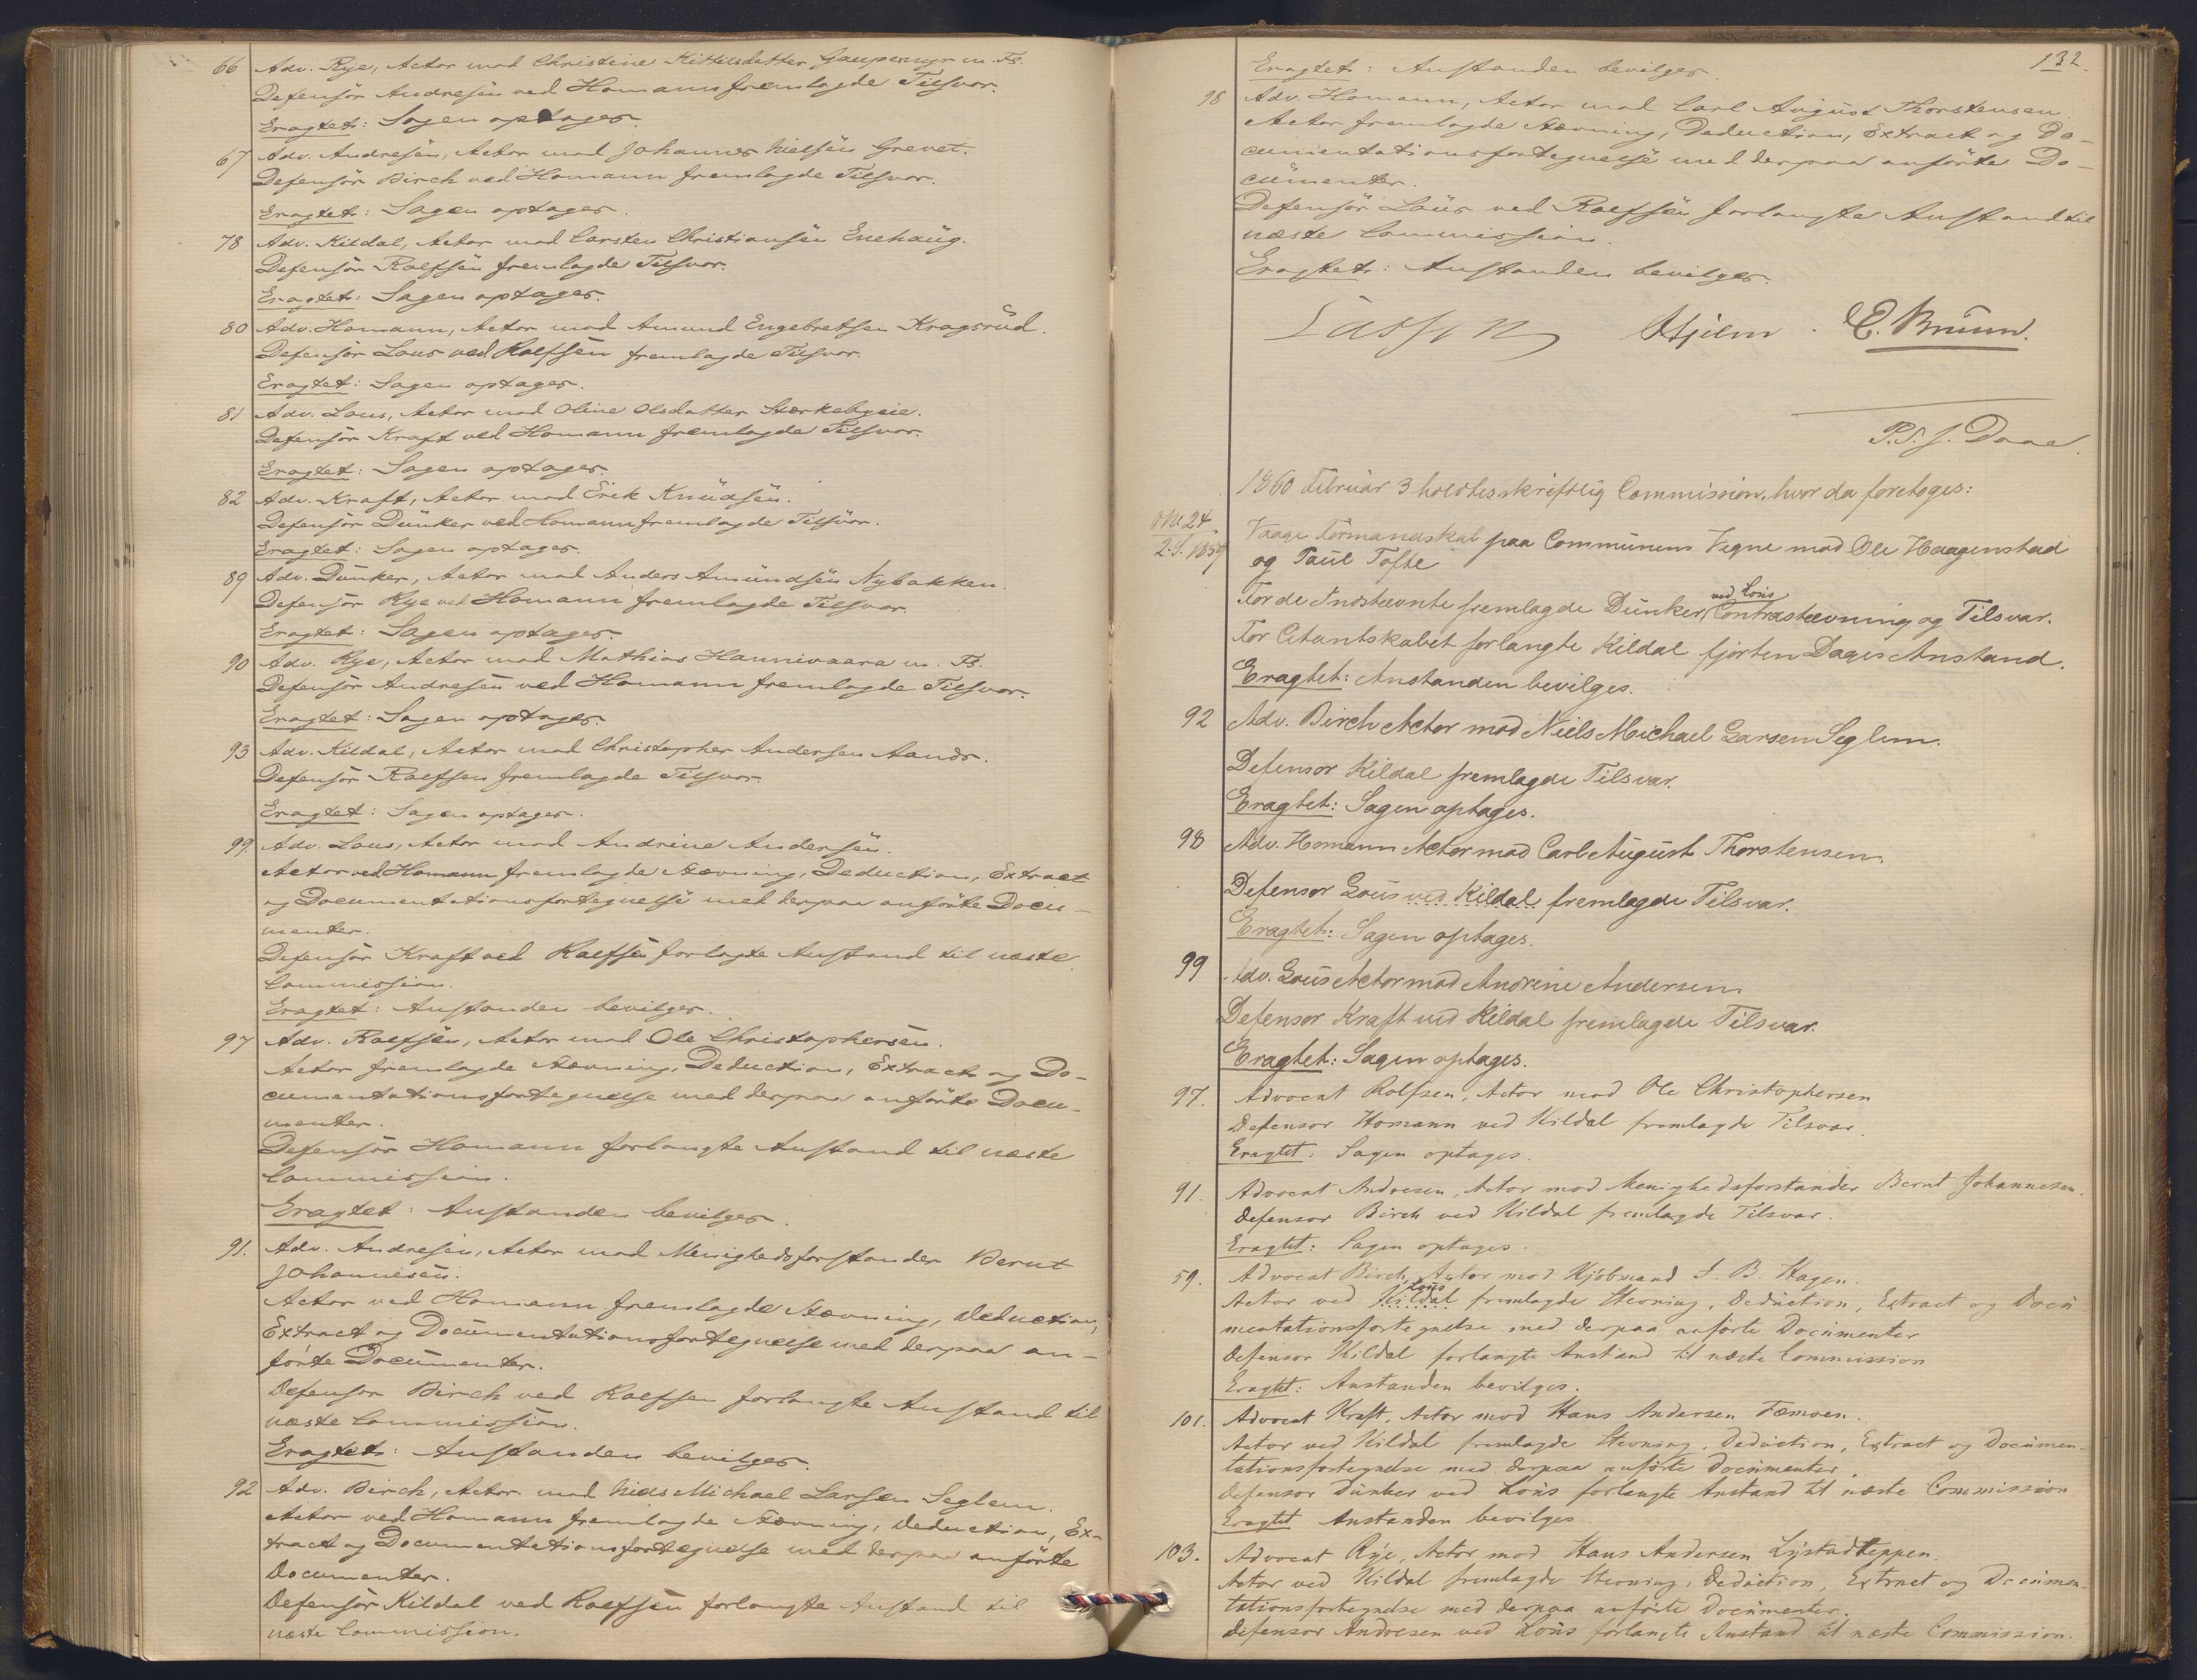 66 Adv. Rye, Actor mod Christine Kittilsdatter Gaupemyr m. Fl.
Defensor Andresen ved Homann fremlagde Tilsvar.
Eragtet: Sagen optages.
67 Adv. Andresen, Actor mod Johannes Nielsen Grevet.
Defensor Birch ved Homann fremlagde Tilsvar.
Eragtet: Sagen optages.
78 Adv. Kildal, Actor mod Carsten Christiansen Enehaug.
Defensor Rolfsen fremlagde Tilsvar.
Eragtet: Sagen optages.
80 Adv. Homann, Actor mod Amund Engebretsen Kragsrud.
Defensor Lous ved Rolfsen fremlagde Tilsvar.
Eragtet: Sagen optages.
81 Adv. Lous, Actor mod Oline Olsdatter Størkebyeie.
Defensor Kraft ved Homann fremlagde Tilsvar.
Eragtet: Sagen optages.
82 Adv. Kraft, Actor mod Erik Knudsen.
Defensor Dunker ved Homann fremlagde Tilsvar.
Eragtet: Sagen optages.
89 Adv. Dunker, Actor mod Anders Amundsen Nybakken.
Defensor Rye ved Homann fremlagde Tilsvar.
Eragtet: Sagen optages.
90 Adv. Rye, Actor mod Mathias Hannivaara m. Fl.
Defensor Andresen ved Homann fremlagde Tilsvar.
Eragtet: Sagen optages.
93 Adv. Kildal, Actor mod Christopher Andersen Aands.
Defensor Rolfsen fremlagde Tilsvar.
Eragtet: Sagen optages.
99. Adv. Lous, Actor mod Andrine Andersen.
Actor ved Homann fremlagde Stævning, Deduction, Extract
og Documentationsfortegnelse med derpaa anførte Docu-
menter.
Defensor Kraft ved Rolfsen forlagte Anstand til næste
Commission.
Eragtet: Anstanden bevilges.
97 Adv. Rolfsen, Actor mod Ole Christophersen.
Actor fremlagde Stævning, Deduction, Extract og Do-
cumentationsfortegnelse med derpaa anførte Docu-
menter.
Defensor Homann forlangte Anstand til næste
Commission.
Eragtet: Anstanden bevilges.
91. Adv. Andresen, Actor mod Menighedsforstander Bernt
Johannesen.
Actor ved Homann fremlagde Stævning, Deduction,
Extract og Documentationsfortegnelse med derpaa an-
førte Documenter.
Defensor Birch ved Rolfsen forlangte Anstand til
næste Commission.
Eragtet: Anstanden bevilges.
92 Adv. Birch, Actor mod Niels Michael Larsen Seglem.
Actor ved Homann fremlagde Stævning, Deduction, Ex-
tract og Documentationsfortegnelse med derpaa anførte
Documenter.
Defensor Kildal ved Rolfsen forlangte Anstand til
næste Commission.
132.
Eragtet: Anstanden bevilges.
98 Adv. Homann, Actor mod Carl August Thorstensen.
Actor fremlagde Stævning, Deduction, Extract og Do-
cumentationsfortegnelse med derpaa anførte Do-
cumenter.
Defensor Lous ved Rolfsen forlangte Anstand til
næste Commission.
Eragtet: Anstanden bevilges.
Lasson Hjelm. E. Bruun.
P. T. J. Daae
1860 Februar 3 holdtes skriftlig Commission, hvor da foretoges:
No 24
2. S. 1859
Vaage Formandskab paa Communens Vegne mod Ole Haagenstad
og Paul Tofte
For de Indstævnte fremlagde Dunker, ved Lous Contrastævning og Tilsvar.
For Citantskabet forlangte Kildal fjorten Dages Anstand.
Eragtet: Anstanden bevilges.
92 Adv. Birch Actor mod Niels Michael Larsen Seglem.
Defensor Kildal fremlagde Tilsvar.
Eragtet: Sagen optages.
98 Adv. Homann Actor mod Carl August Thorstensen.
Defensor Lous ved Kildal fremlagde Tilsvar.
Eragtet: Sagen optages.
99 Adv. Lous Actor mod Andrine Andersen.
Defensor Kraft ved Kildal fremlagde Tilsvar.
Eragtet: Sagen optages.
97. Advocat Rolfsen, Actor mod Ole Christophersen
Defensor Homann ved Kildal fremlagde Tilsvar.
Eragtet: Sagen optages.
91. Advocat Andresen, Actor mod Menighedsforstander Bernt Johannesen.
Defensor Birch ved Kildal fremlagde Tilsvar.
Eragtet: Sagen optages.
59. Advocat Birch, Actor mod Kjøbmand J. B. Hagen.
Lous
Actor ved Kildal fremlagde Stevning, Deduction, Extract og Docu
mentationsfortegnelse med derpaa anførte Documenter
Defensor Kildal forlangte Anstand til næste Commission
Eragtet: Anstanden bevilges.
101. Advocat Kraft, Actor mod Hans Andersen Fæmoen.
Actor ved Kildal fremlagde Stevning, Deduction, Extract og Documen-
tationsfortegnelse med derpaa anførte Documenter.
Defensor Dunker ved Lous forlangte Anstand til næste Commission
Eragtet Anstanden bevilges.
103. Advocat Rye, Actor mod Hans Andersen Lystadteppen.
Actor ved Kildal fremlagde Stevning, Deduction, Extract og Documen-
tationsfortegnelse med derpaa anførte Documenter.
Defensor Andresen ved Lous forlangte Anstand til næste Commission.